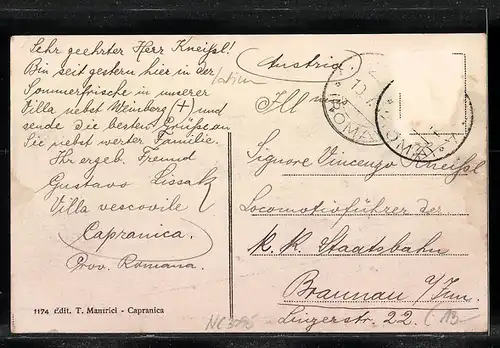 Sehr geehrter Herr Kneißl!
Bin seit gestern hier in der
Sommerfrische in unserer
Villa nebst Weinberg (+) und
sende die besten Grüße an
Sie nebst werter Familie.
Ihr ergeb. Freund
Gustavo Lissak
Villa vescovile
Capranica.
Prov. Romana.
1174 Edit. T. Mantrici - Capranica
Austria
Ill
Signore Vincenzo Kneißl
Locomotivführer der
k. k. Staatsbahn
Braunau a/Inn.
Linzerstr. 22.